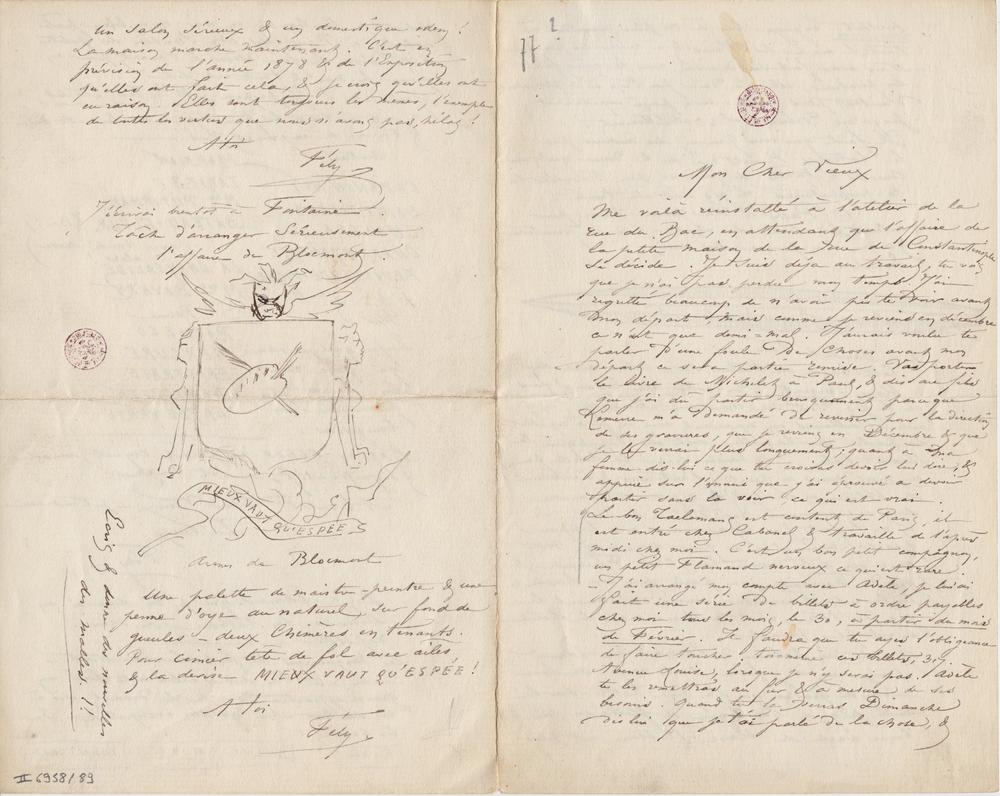 77 2
Mon Cher Vieux
Me voilà réinstallé à l'atelier de la
rue du Bac, en attendant que l'affaire de
la petite maison de la rue de Constantinople
se décide. Je suis déja au travail, tu vois
que je n'ai pas perdu mon temps. J'ai
regretté beaucoup de n'avoir pu te voir avant
mon départ, mais comme je reviens en décembre
ce n'est que demi-mal. J'aurais voulu te
parler d'une foule de choses avant mon
départ ce sera partie remise. Vas porter
le livre de Michelet à Paul, & dis au fils
que j'ai dû partir brusquement parceque
Lemerre m'a demandé de revenir pour la direction
de ses gravures, que je reviens en Décembre & que
je le verrai plus longuement; quant à ma
femme dis lui ce que tu croiras devoir lui dire, &
appuie sur l'ennui que j'ai éprouvé a devoir
partir sans la voir ce qui est vrai.
Le bon Taelemans est content de Paris, il
est entré chez Cabanel & travaille de l'après
midi chez moi. C'est un bon petit compagnon,
un petit Flamand nerveux ce qui est rare.
J'ai arrangé mon compte avec , je lui ai
fait une série de billets à ordre payables
chez moi tous les mois, le 30, à partir du mois
de Février. Il faudra que tu ayes l'obligeance
de faire toucher ces billets, 37.
Avenue Louise, lorsque je n'y serai pas.
te les remettras au fur & a mesure de ses
besoins. Quand tu la verras Dimanche
dis lui que je t'ai parlé de la chose, &
un salon sérieux & un domestique idem!
La maison marche maintenant. C'est en
prévision de l'année 1878 & de l'Exposition
qu'elles ont fait cela, & je crois qu'elles ont
eu raison. Elles sont toujours les mêmes, l'exemple
de toutes les vertus que nous n'avons pas, hélas!
A toi
Fély
J'écrirai bientot à Fontaine.
Tâche d'arranger Sérieusement
l'affaire de Blocmont.
MIEUX VAUT QU'ESPÉE
Armes de Blocmont
Une palette de maistre-peintre & une
penne d'oye au naturel, sur fond de
gueules – deux Chimères en tenants.
Pour cimier tete de fol avec ailes
& la devise MIEUX VAUT QU'ESPÉE!
A toi
Fély
Ecris & donne des nouvelles
des malles.!!
II 6958/89